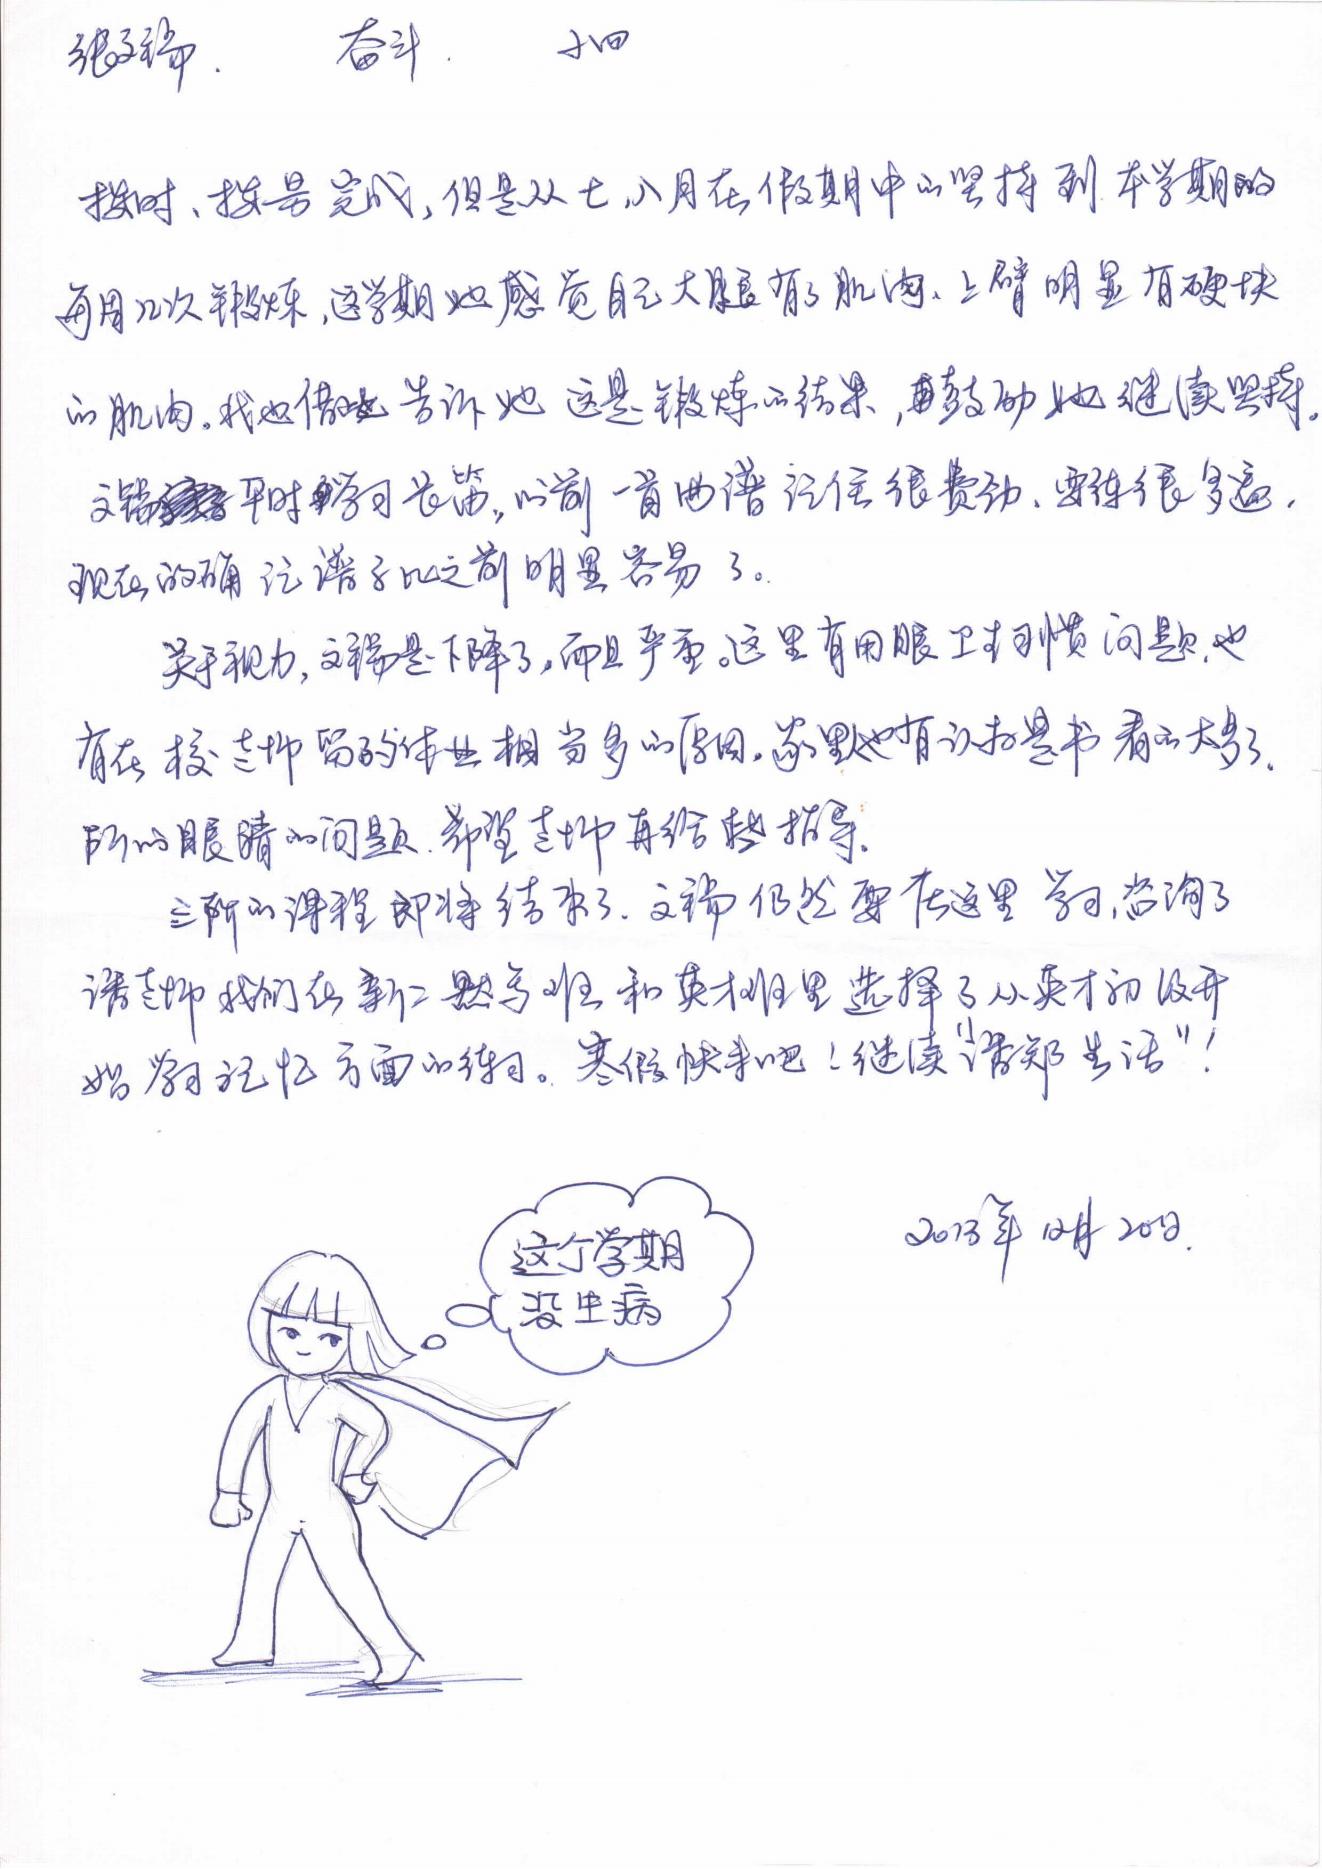 张文瑞. 奋斗. 小四
按时、按量完成,但是从七、八月在假期中的坚持到本学期的
每周几次锻炼,这学期她感觉自己大腿有了肌肉、上臂明显有硬块
的肌肉。我也借此告诉她这是锻炼的结果,鼓励她继续坚持。
文瑞平时学习长笛,以前一首曲谱记住很费劲、要练很多遍,
现在的确记谱子比之前明显容易了。
关于视力,文瑞是下降了,而且严重。这里有用眼卫生习惯问题,也
有在校老师留的作业相当多的原因。家里也有认为是书看的太多了.
所以眼睛的问题.希望老师再给些指导.
三阶的课程即将结束了.文瑞仍然要在这里学习,咨询了
潘老师我们在新仁默写班和英才班里选择了从英才初段开
始学习记忆方面的练习。寒假快来吧!继续“潘郑生活”!
2013年12月20日.
这个学期
没生病